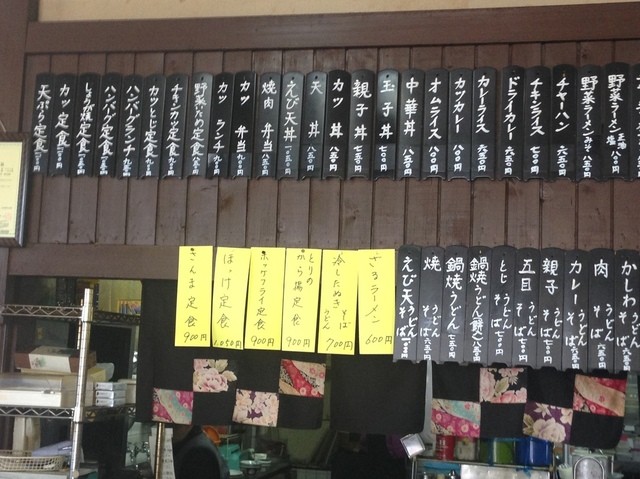 野菜ラーメン 正油 塩
野菜ラーメンみそ
チャーハン
チキンライス 七〇〇
ドライカレー 六五〇
カレーライス 六五〇
カツカレー 八〇〇
オムライス 八〇〇
中華丼 八五〇
玉子丼 七〇〇
親子丼 七五〇
カツ丼 八五〇
天丼 八五〇
えび天丼 一〇五〇
焼肉弁当
カツ弁当
カツランチ
野菜いため定食
チキンカツ定食
カツとじ定食
ハンバーグランチ
ハンバーグ定食
しょうが焼定食
カツ定食
天ぷら定食
かしわ うどん そば
肉 うどん そば
カレー うどん そば
親子 うどん そば
五目 うどん そば
とじ うどん そば
鍋焼うどん
鍋焼うどん
焼 うどん そば
えび天 うどん そば
ざるラーメン 600円
冷したぬき そば うどん 700円
とりのから揚定食 900円
ホッケフライ定食 900円
ほっけ定食 1,050円
さんま定食 900円